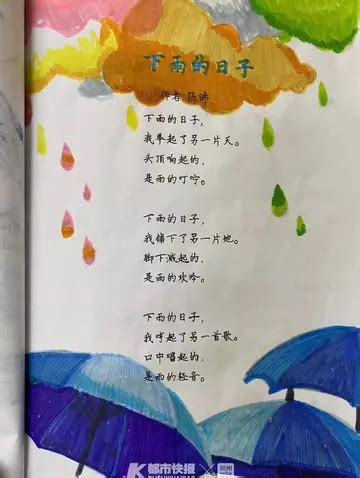 下雨的日子
作者 陈昤
下雨的日子，
我举起了另一片天。
头顶响起的，
是雨的叮咛。
下雨的日子，
我铺下了另一片地。
脚下溅起的，
是雨的欢吟。
下雨的日子，
我哼起了另一首歌。
口中唱起的，
是雨的轻音。
都市快报
杭州